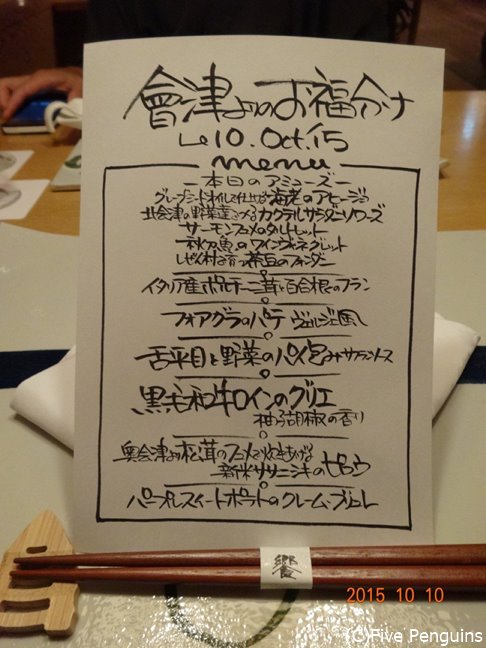 會津よりのお福分け
Le 10. Oct. '15
menu
— 本日のアミューズ —
グレープシードオイルで仕立てた海老のアヒージョ
北会津の野菜達でつくるカクテルサラダ
サーモンフュメのタルトレット
秋刀魚のワインヴィネグレット
茶豆のフォンダン
イタリア産ポルチーニ茸と百合根のフラン
フォアグラのパテ ヴェルジュ風
舌平目と野菜のパイ包み
黒毛和牛ロインのグリエ
柚子胡椒の香り
奥会津より松茸のフュメで炊きあげる
新米ササニシキのピラウ
スイートポテトのクレーム・ブリュレ
饗
2015 10 10
(C)Five Penguins